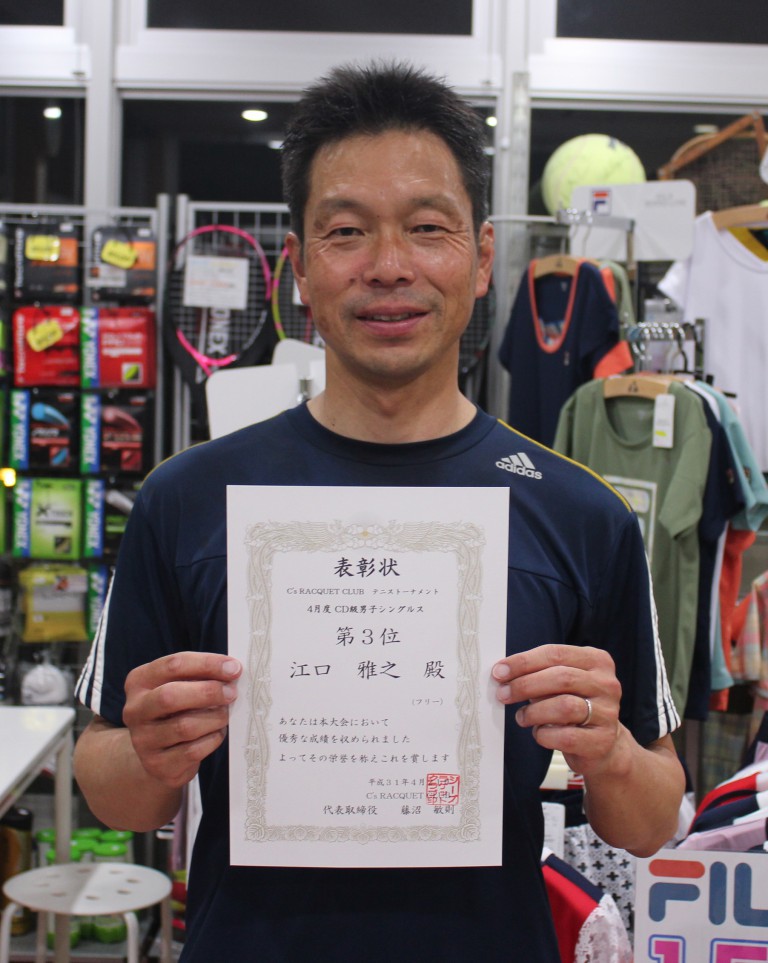 YONEX
FILA
adidas
表彰状
C's RACQUET CLUB テニストーナメント
4月度 CD級男子シングルス
第3位
江口 雅之 殿
(フリー)
あなたは本大会において
優秀な成績を収められました
よってその栄誉を称えこれを賞します
平成31年4月
C's RACQUET
代表取締役 藤沼 敏則
FIL